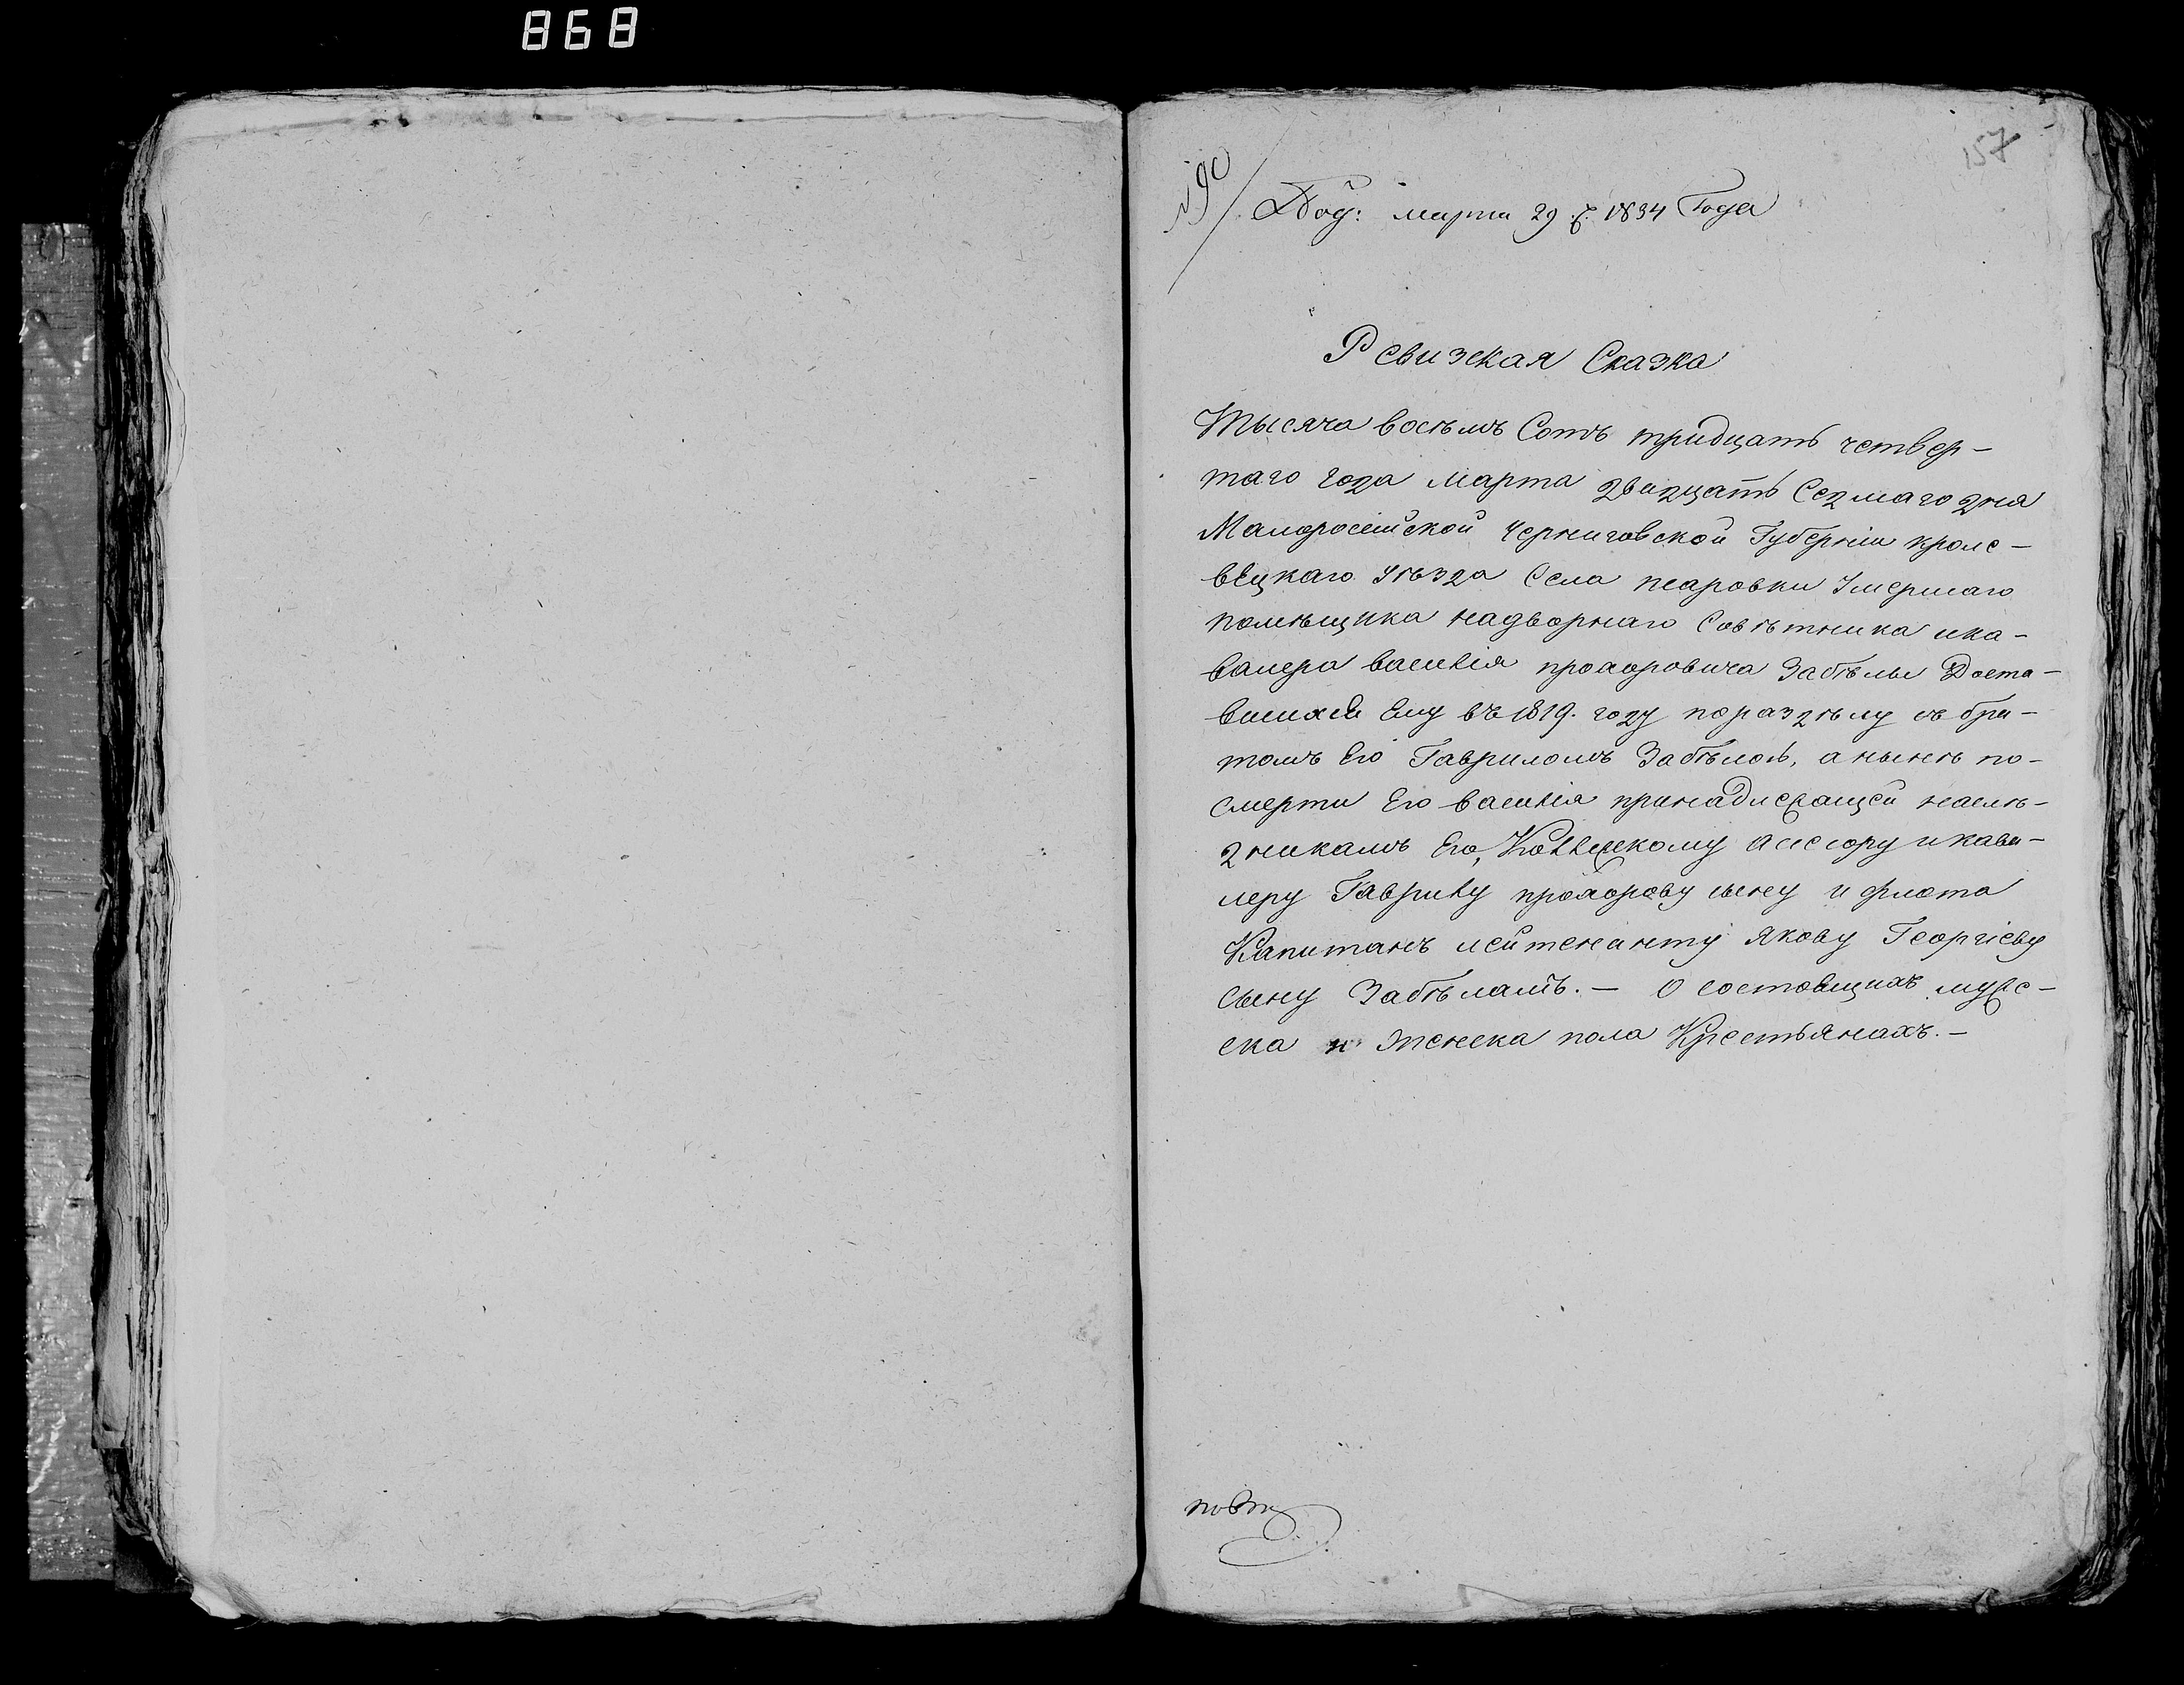 868
157
№ 90
Под: марта 29 ч. 1834 Года
Ревизская Сказка
Тысяча восѣмъ Сотъ тридцать четвер-
таго года марта двадцать Седмаго дня
Малоросійской Черниговской Губерніи кроле-
вецкаго уѣзда Села Умершаго
помѣщика надворнаго Совѣтника и ка-
валера василія прохоровича Забѣлы Доста-
вшихся Ему въ 1819. году по раздѣлу съ бра-
томъ Его Гавриломъ Забѣлою, а нынѣ по-
смерти Его василія принадлежащей наслѣ-
дникамъ Его, Коллежскому асессору и кава-
леру Гаврилу прохорову сыну и флота
Капитанъ лейтенанту Якову Георгіеву
сыну Забѣламъ. — О состоящихъ муже-
ска и женска пола Крестьянахъ. —